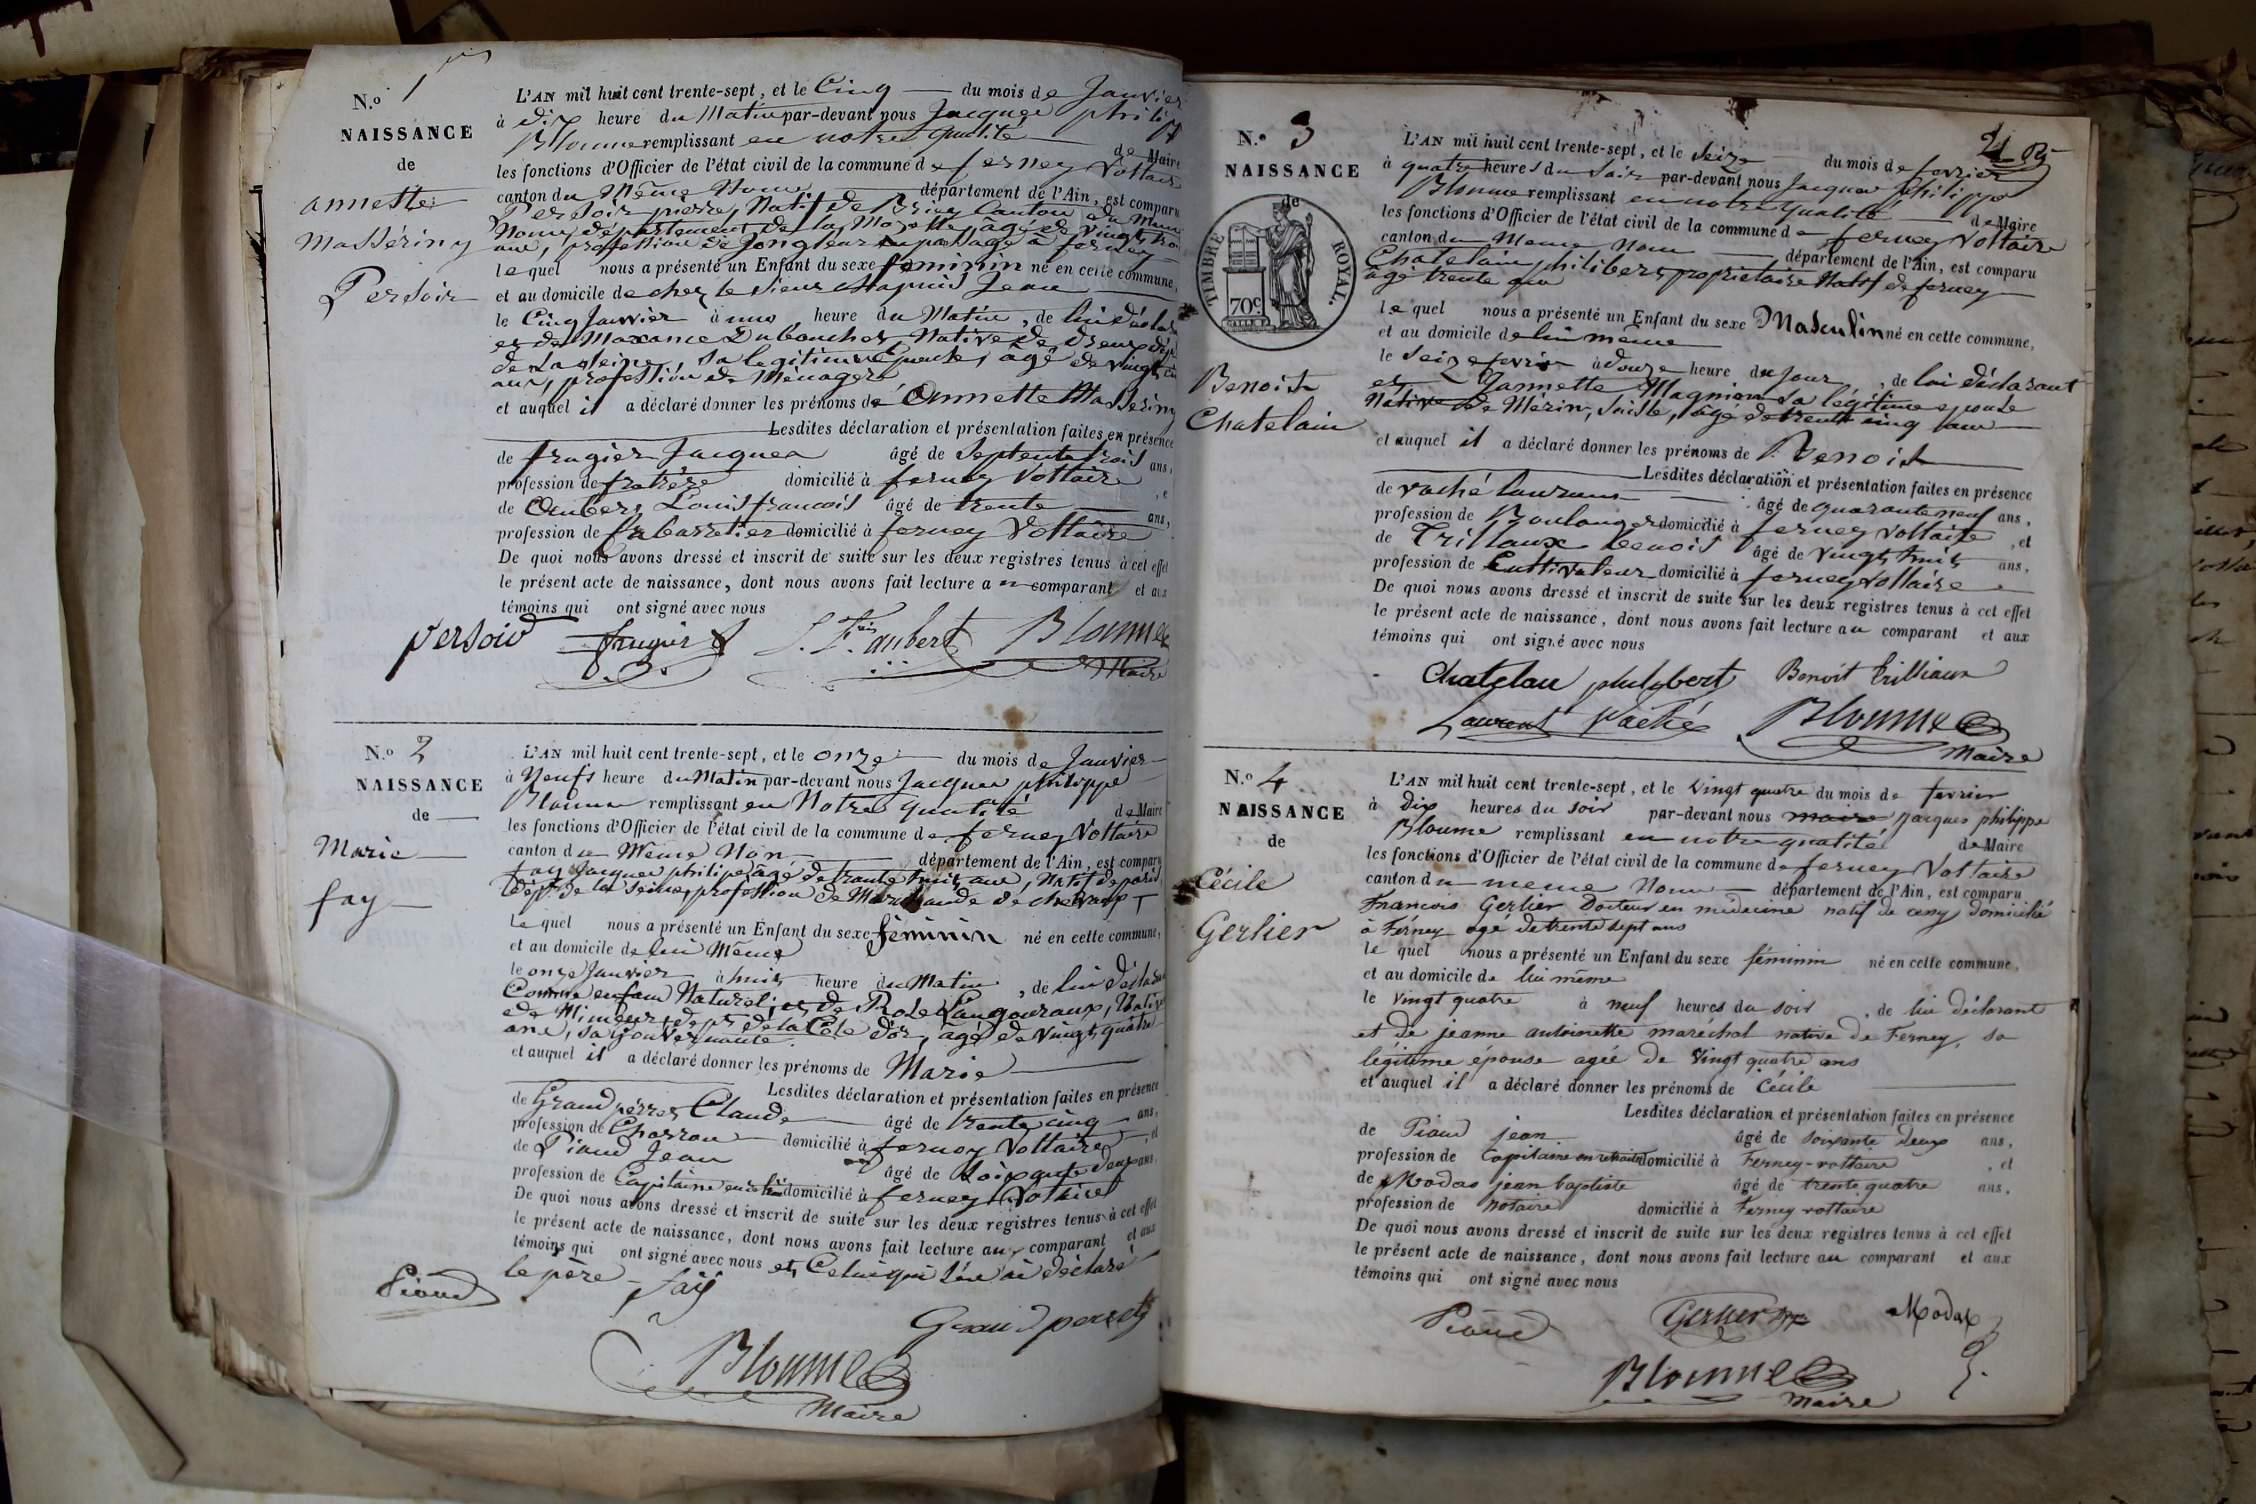 N.o 1
NAISSANCE
de
annette
Massériny
Persoir
L'AN mil huit cent trente-sept, et le Cinq du mois de Janvier
à dix heure du Matin par-devant nous Jacques phili
Bloume remplissant en notre qualité de Maire
les fonctions d'Officier de l'état civil de la commune de ferney Voltaire
canton du Même Nom département de l'Ain, est comparu
Persoir pierre, Natif de Briey Canton du Même
Nom, département de la Mozelle, âgé de vingt
ans, profession de Jongleur en passage à ferney
le quel nous a présenté un Enfant du sexe feminin né en cette commune,
et au domicile de chez le Sieur Chapuis Jean
le Cinq Janvier à une heure du Matin, de lui déclar
et de Maxance Dubouchet, Native de Dreux dép
de La Seine, sa legitime Epouse, âgé de vingt
ans, profession de Ménagère
et auquel il a déclaré donner les prénoms de Annette Masseriny
Lesdites déclaration et présentation faites en présence
de frugier Jacques âgé de Septente trois ans,
profession de domicilié à ferney Voltaire
de Aubert Louis francois âgé de trente ans,
profession de domicilié à ferney Voltaire
De quoi nous avons dressé et inscrit de suite sur les deux registres tenus à cet effet
le présent acte de naissance, dont nous avons fait lecture au comparant et aux
témoins qui ont signé avec nous
persoir frugier L. F. aubert Bloume
Maire
N.o 2
NAISSANCE
de
Marie
fay
L'AN mil huit cent trente-sept, et le onze du mois de Janvier
à Neufs heure du Matin par-devant nous Jacques philippe
Bloume remplissant en Notre qualité de Maire
les fonctions d'Officier de l'état civil de la commune de ferney Voltaire
canton du Même Nom département de l'Ain, est comparu
fay Jacques philipe âgé de trante huit ans, Natif de paris
Dépt de la Seine, profession de Marchande de chevaux
le quel nous a présenté un Enfant du sexe féminin né en cette commune,
et au domicile de lui Même
le onze Janvier à huit heure du Matin, de lui déclarant
Comme enfant Naturel; et de Rose Langouraux, Native
de Mimeur, dept de la Côte d'or, âgé de vingt quatre
ans, sa gouvernante
et auquel il a déclaré donner les prénoms de Marie
Lesdites déclaration et présentation faites en présence
de Grand perret Claude âgé de trente cinq ans,
profession de Charron domicilié à ferney Voltaire, et
de Piaud Jean âgé de Soixante deux ans,
profession de Capitaine en domicilié à ferney Voltaire
De quoi nous avons dressé et inscrit de suite sur les deux registres tenus à cet effet
le présent acte de naissance, dont nous avons fait lecture aux comparant et aux
témoins qui ont signé avec nous et Celui qui s'en ai déclaré
le père fay
Piaud
Grand perret
Bloume
Maire
N.o 3
NAISSANCE
de
TIMBRE ROYAL.
70c
Benoit
Chatelain
L'AN mil huit cent trente-sept, et le Seize du mois de fevrier
à quatre heures du Soir par-devant nous Jacques philippe
Bloume remplissant en notre qualité de Maire
les fonctions d'Officier de l'état civil de la commune de ferney Voltaire
canton du Meme Nom département de l'Ain, est comparu
Chatelain philibert, propriétaire Natif de ferney
âgé trente
le quel nous a présenté un Enfant du sexe Masculin né en cette commune,
et au domicile de lui même
le Seize fevrier à douze heure du jour, de lui déclarant
et Jannette Magnien sa légitime epouse
Native de Mézin, Suisse, âgé de trente cinq ans
et auquel il a déclaré donner les prénoms de Benoit
Lesdites déclaration et présentation faites en présence
de vaché laurent âgé de quarante neuf ans,
profession de Boulanger domicilié à ferney voltaire, et
de Trilliaux benoit âgé de vingt huit ans,
profession de Cultivateur domicilié à ferney voltaire
De quoi nous avons dressé et inscrit de suite sur les deux registres tenus à cet effet
le présent acte de naissance, dont nous avons fait lecture au comparant et aux
témoins qui ont signé avec nous
Chatelain philybert Benoit trilliaux
Laurent Vaché Bloume
Maire
N.o 4
NAISSANCE
de
Cécile
Gerlier
L'AN mil huit cent trente-sept, et le vingt quatre du mois de fevrier
à dix heures du soir par-devant nous maire jacques philippe
Bloume remplissant en notre qualité de Maire
les fonctions d'Officier de l'état civil de la commune de ferney Voltaire
canton du meme Nom département de l'Ain, est comparu
Francois Gerlier Docteur en medecine natif de cessy domicilié
à Férney agé de trente sept ans
le quel nous a présenté un Enfant du sexe féminin né en cette commune,
et au domicile de lui même
le vingt quatre à neuf heures du soir, de lui déclarant
et de jeanne antoinette maréchal native de Ferney, sa
légitime epouse agée de vingt quatre ans
et auquel il a déclaré donner les prénoms de Cécile
Lesdites déclaration et présentation faites en présence
de Piaud jean âgé de soixante deux ans,
profession de Capitaine en retraite domicilié à Ferney-voltaire, et
de Modas jean baptiste âgé de trente quatre ans,
profession de notaire domicilié à Ferney voltaire
De quoi nous avons dressé et inscrit de suite sur les deux registres tenus à cet effet
le présent acte de naissance, dont nous avons fait lecture au comparant et aux
témoins qui ont signé avec nous
Piaud Gerlier Modas
Bloume
Maire